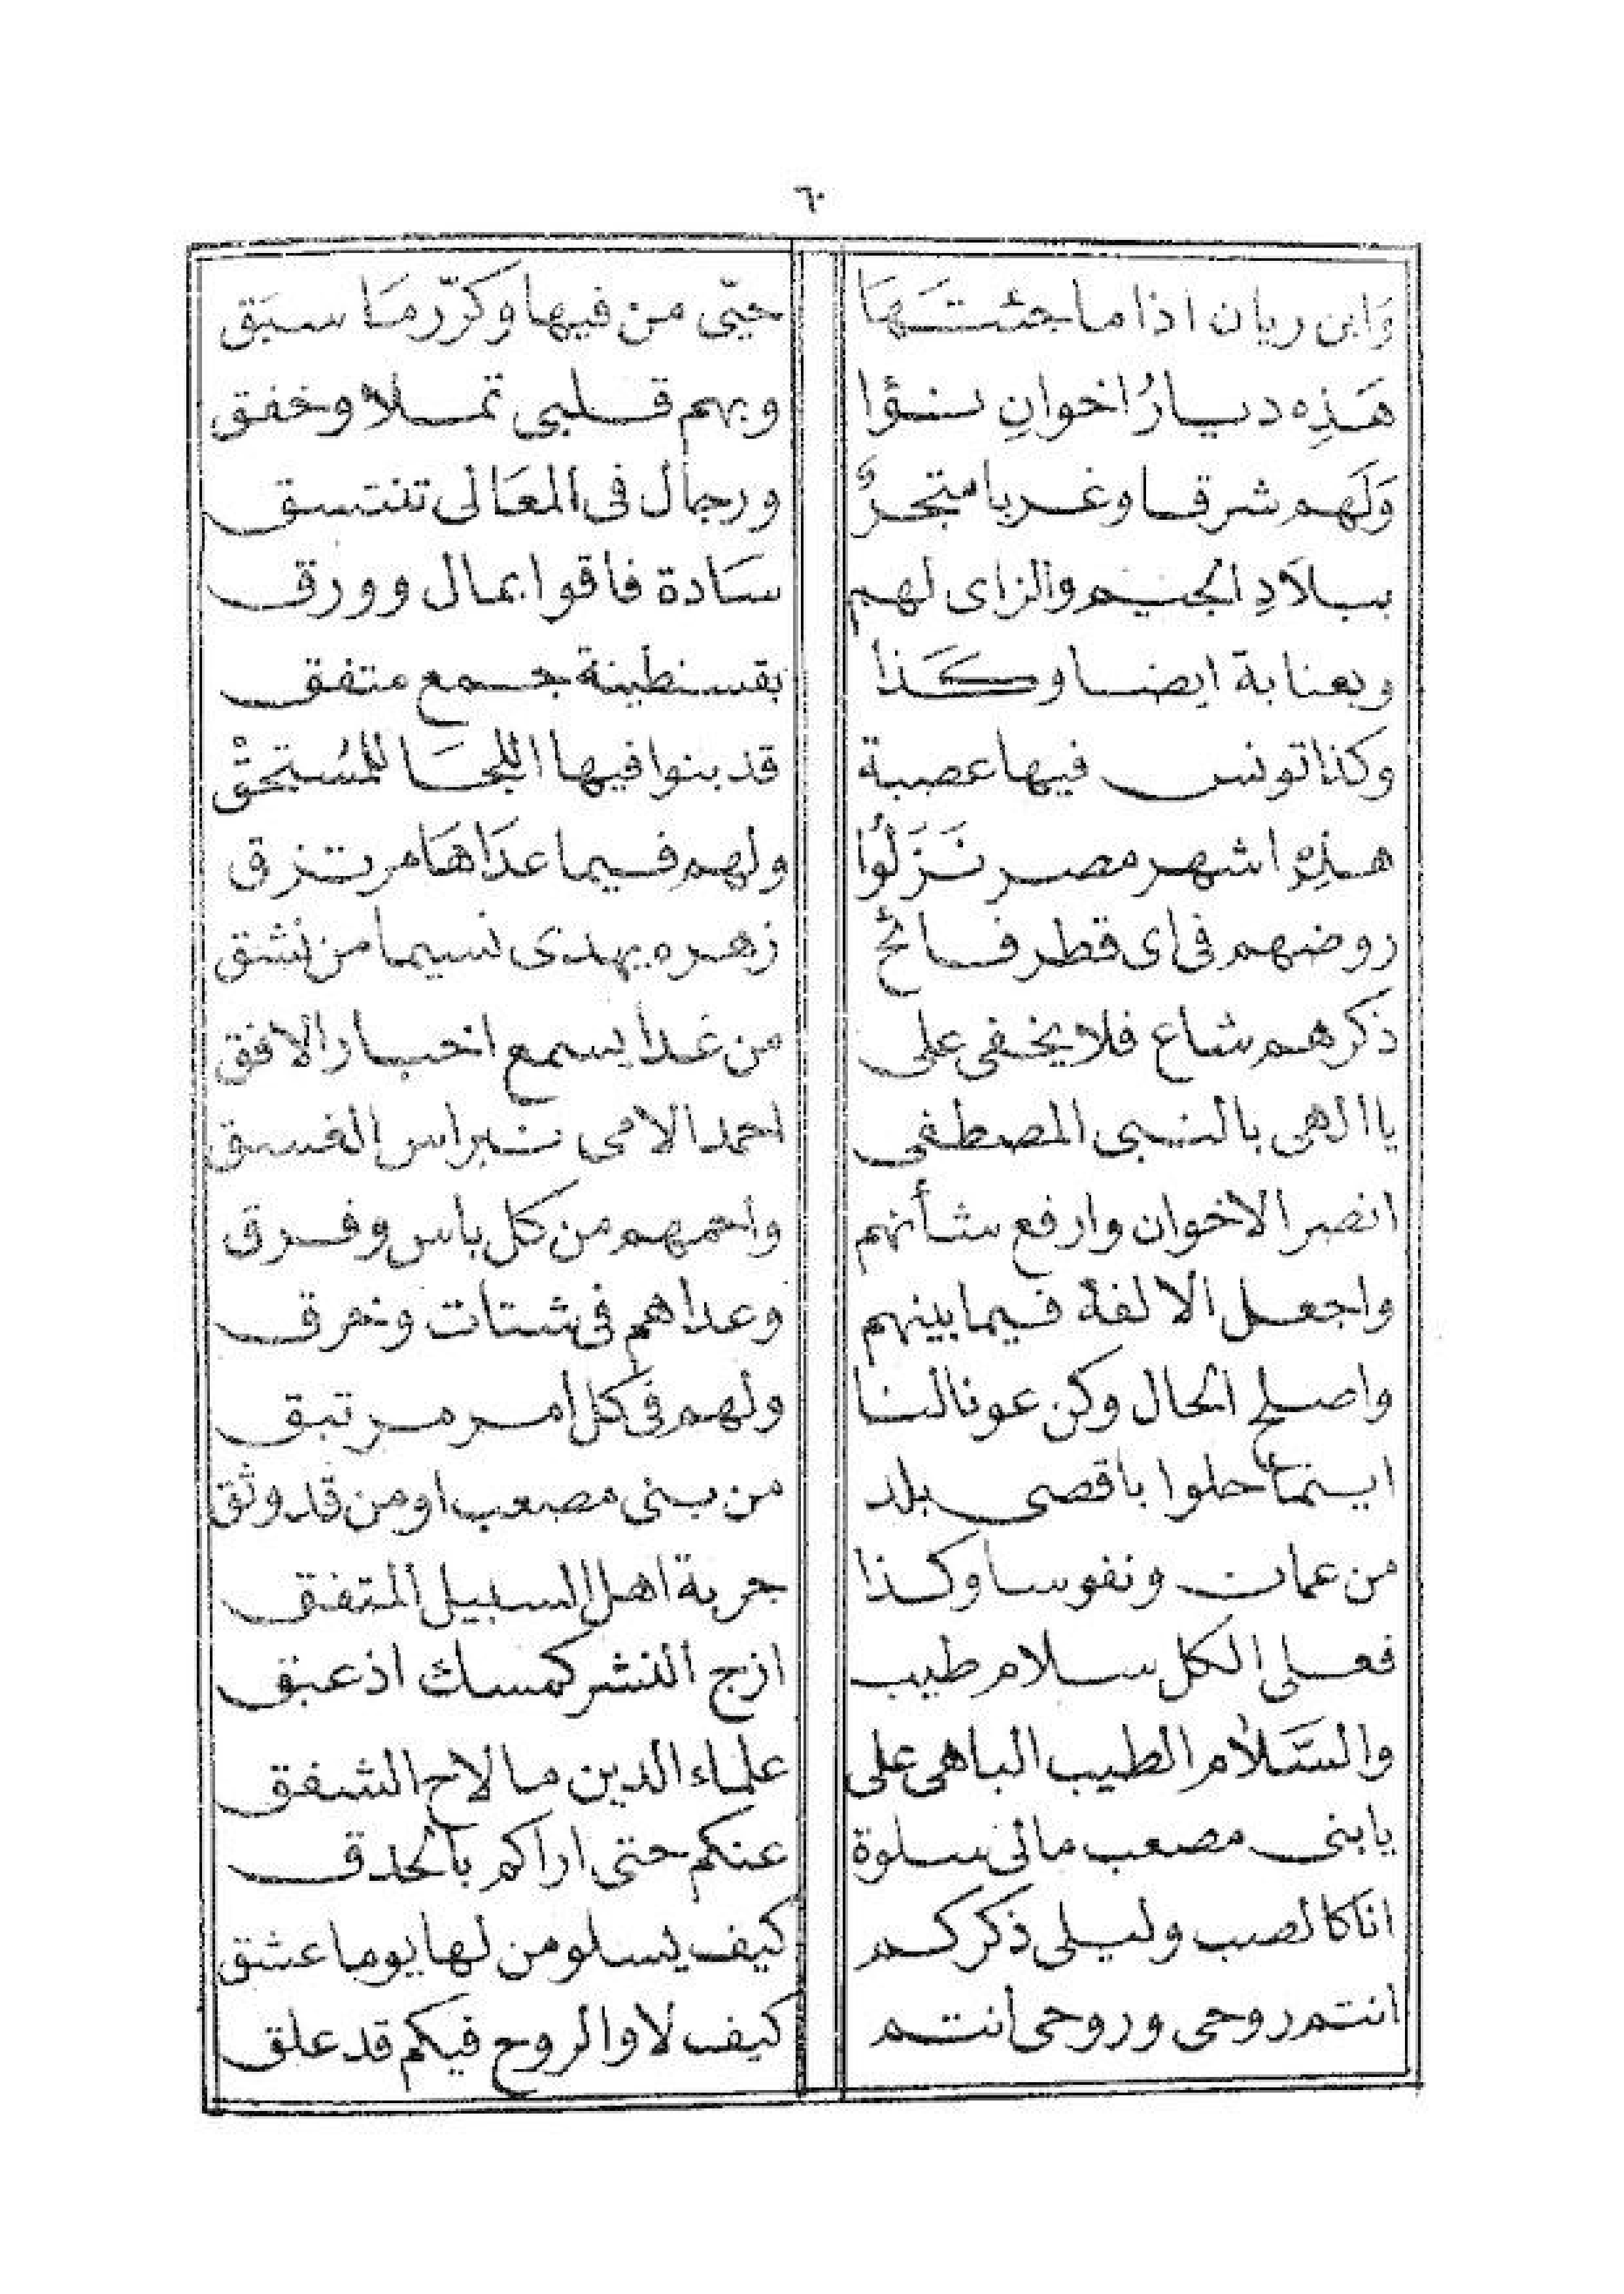 ٦٠
وَابن ريان اذا ما جئتَهَا حيّى من فيها وكرّر مَا سبَق
هَذِه ديارُ اخوانِ نؤا وبهم قلبى تملا وخفق
وَلَهم شرقا وغربا متجرٌ ورجال فى المعَالى تنتسق
ببلاَدِ الجيم والزاى لهم سَادة فاقوا بمال وورق
وبعنابة ايضا وكَذا بقسنطينة جمع متفق
وكذا تونس فيها عصبة قد بنوا فيها اللجَا للمُستحقْ
هذِهْ اشهر مصر نَزَلُوا ولهم فيما عدَاهَا مرتزق
روضهم فى اى قطر فائح زهره يهدى نسيما من نشق
ذكرهم شاع فلا يخفى على من غدا يسمع اخبار الافق
يا الهى بالنبى المصطفى احمد الامى نبراس الغسق
انصر الاخوان وارفع شأنهم واحمهم من كل باس وفرق
واجعل الالفة فيما بينهم وعداهم فى شتات وخرق
واصلح الحال وكن عونا لنا ولهم فى كل أمر مرتبق
اينما حلوا باقصى بلد من بنى مصعب او من قد وثق
من عمان ونفوسا وكذا جربة اهل السبيل المتفق
فعلى الكل سلام طيب ازج النشر كمسك اذ عبق
والسَّلام الطيب الباهى على علماء الدين ما لاح الشفق
يا بنى مصعب مالى سلوة عنكم حتى اراكم بالحدق
انا كالصب وليلى ذكركم كيف يسلو من لها يوما عشق
انتم روحى وروحى أنتم كيف لا والروح فيكم قد علق